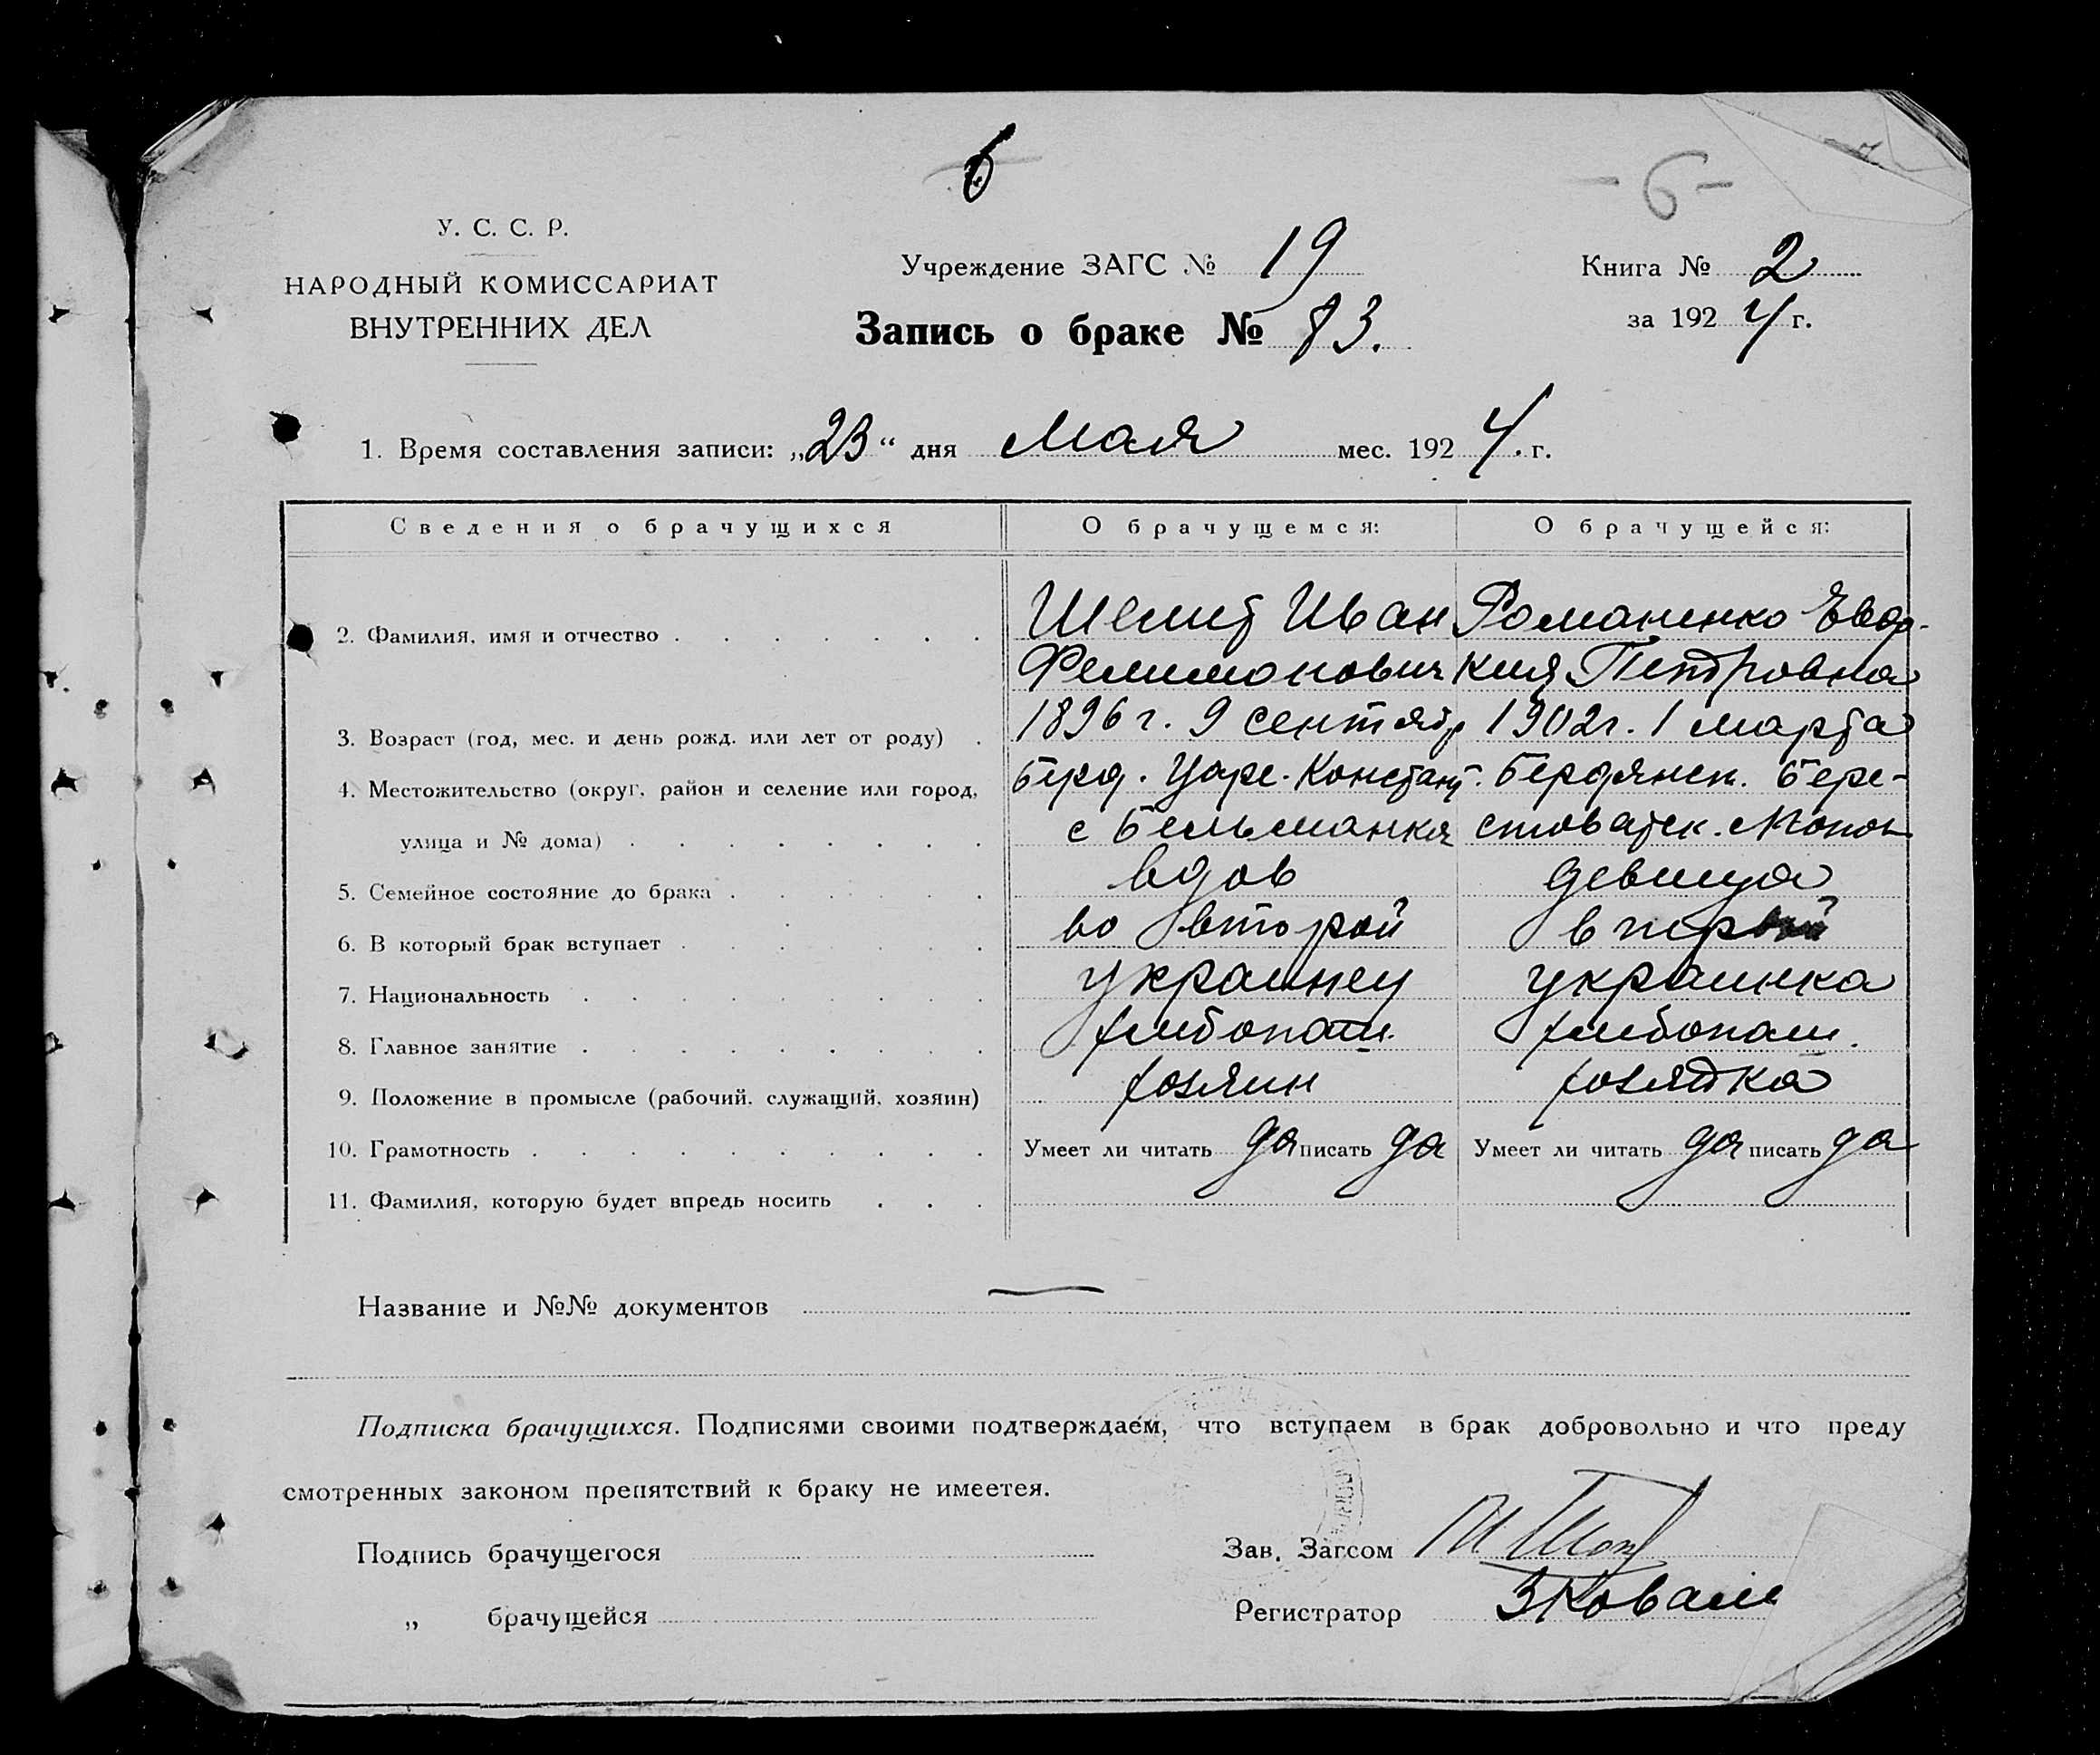 6
- 6 -
У. С. С. Р.
НАРОДНЫЙ КОМИССАРИАТ
ВНУТРЕННИХ ДЕЛ
Учреждение ЗАГС № 19
Книга № 2
за 1924 г.
Запись о браке № 83.
1. Время составления записи: „23“ дня Мая мес. 1924. г.
Сведения о брачущихся О брачущемся: О брачущейся:
2. Фамилия, имя и отчество Иван Романенко Евдо-
Филимонович кия Петровна
3. Возраст (год, мес. и день рожд. или лет от роду) 1896 г. 9 сентябр 1902г. 1 марта
4. Местожительство (округ, район и селение или город, Берд. Царе-Констант. Бердянск. Бере-
улица и № дома) с Бельманка стоватск.
5. Семейное состояние до брака вдов девица
6. В который брак вступает во второй в первый
7. Национальность украинец украинка
8. Главное занятие хлибопаш. хлибопаш.
9. Положение в промысле (рабочий, служащий, хозяин) хозяин хозяйка
10. Грамотность Умеет ли читать да писать да Умеет ли читать да писать да
11. Фамилия, которую будет впредь носить
Название и №№ документов —
Подписка брачущихся. Подписями своими подтверждаем, что вступаем в брак добровольно и что преду
смотренных законом препятствий к браку не имеетея.
Подпись брачущегося
Зав. Загсом
„ брачущейся
Регистратор ЗКоваль